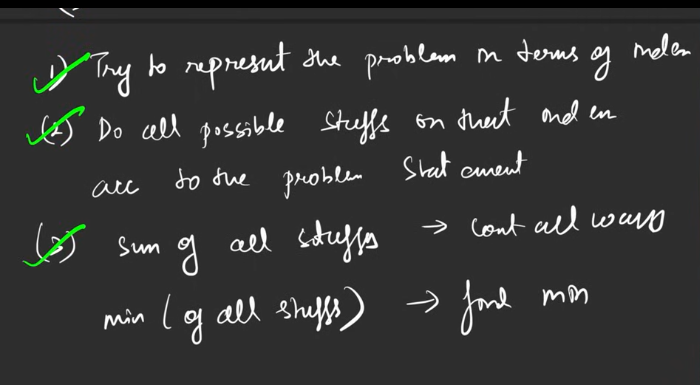 1) Try to represent the problem in terms of index
(2) Do all possible stuffs on that index
acc to the problem statement
(3) sum of all stuffs → count all ways
min (of all stuffs) → find min